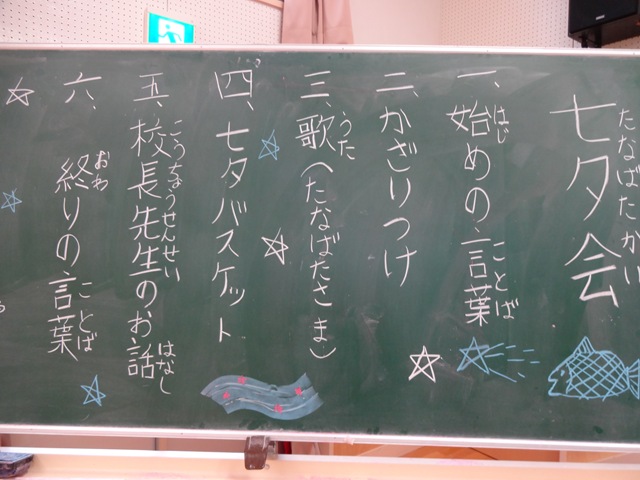 七夕会
たなばたかい
一、始めの言葉
はじ
ことば
二、かざりつけ
三、歌（たなばたさま）
うた
四、七夕バスケット
五、校長先生のお話
こうちょうせんせい
はなし
六、終りの言葉
おわ
ことば